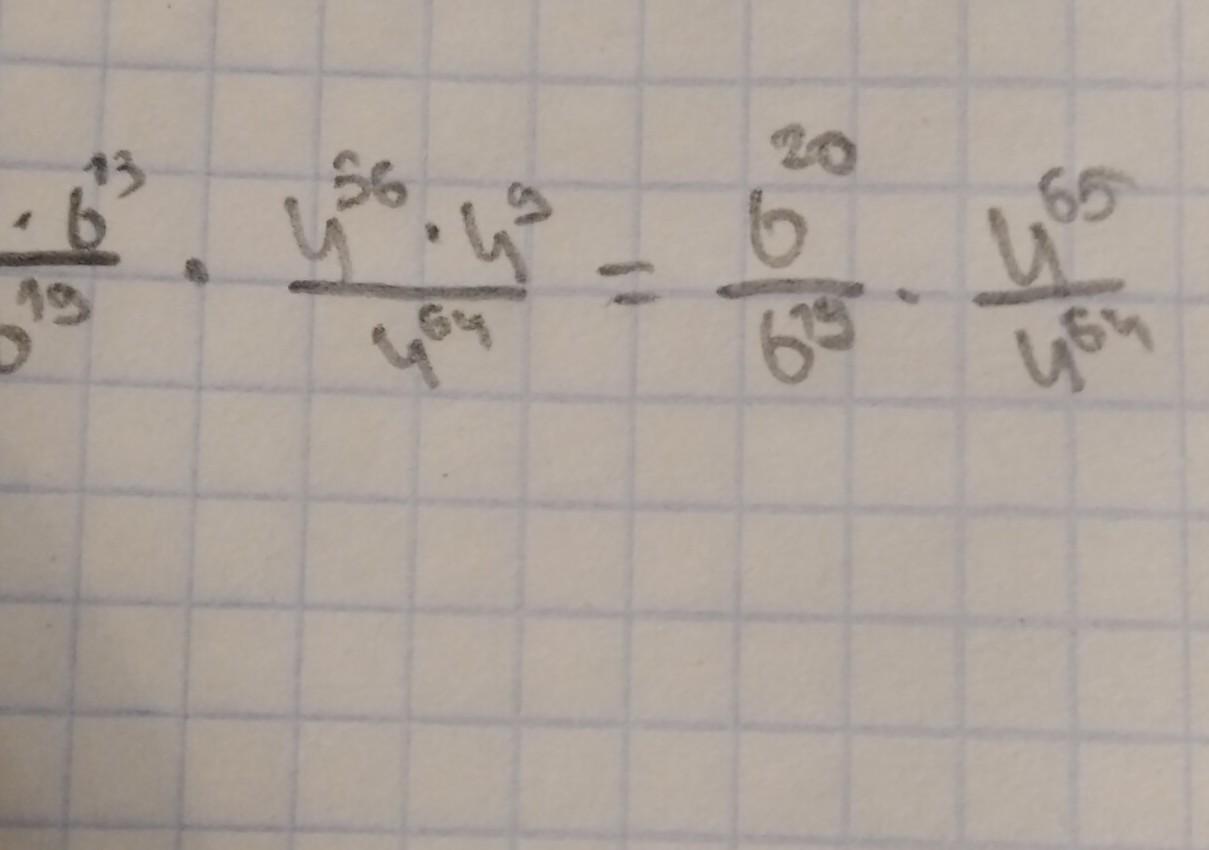 · 6^13 / 6^19 · 4^56 · 4^9 / 4^64 = 6^20 / 6^19 · 4^65 / 4^64